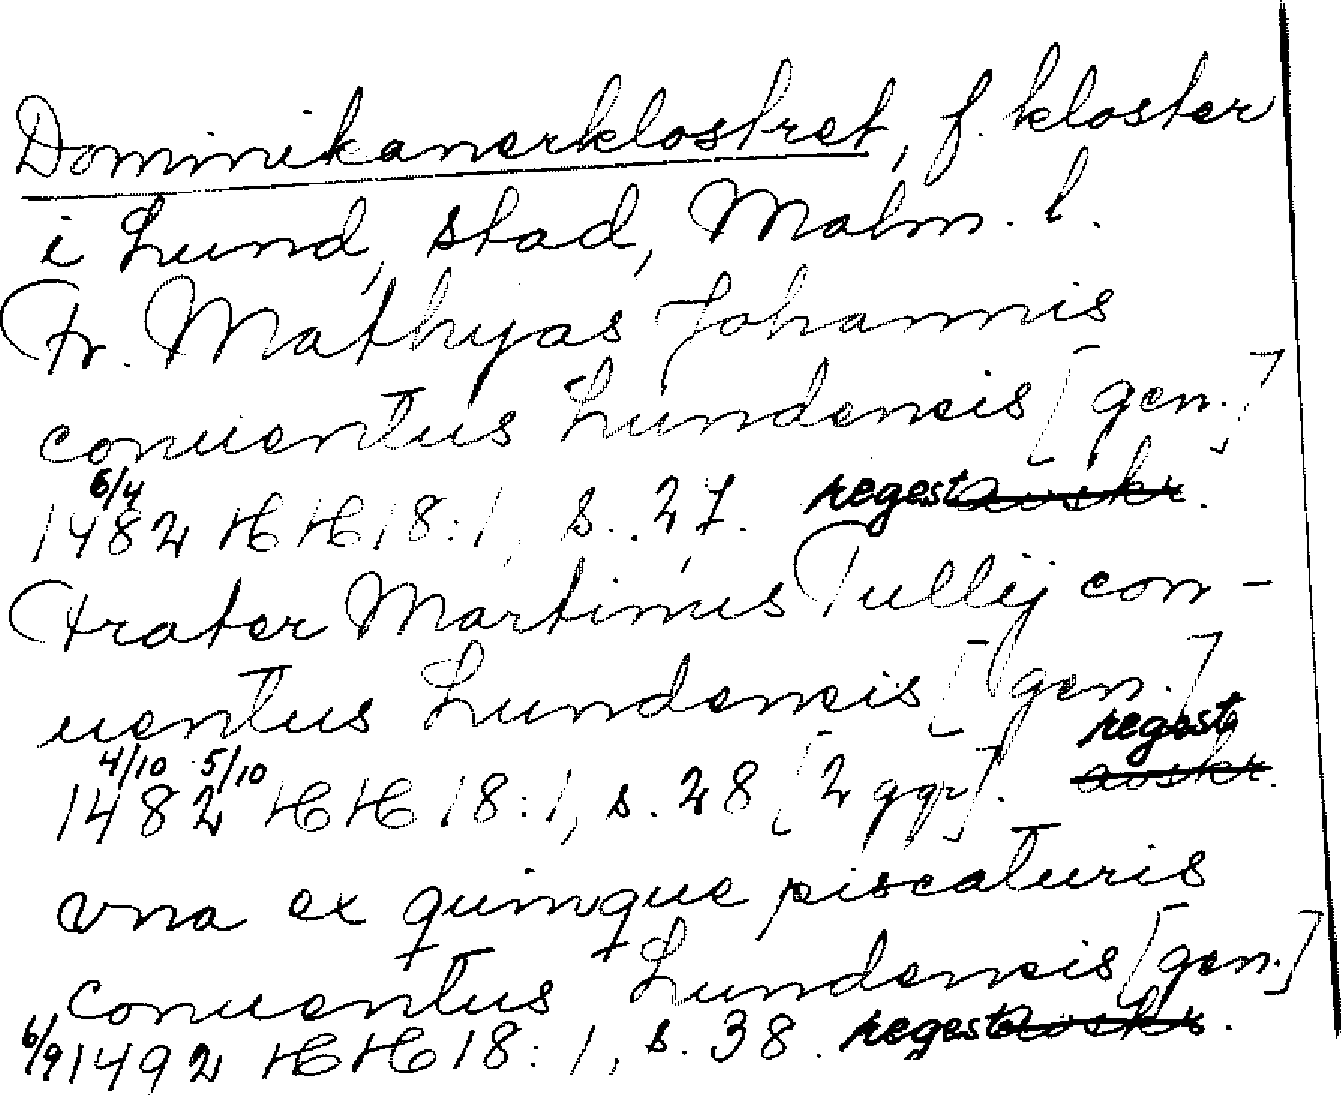 Dominikanerklostret, f. kloster
i Lund, stad, Malm. l.
Fr. Mathyas Johannis
conuentus Lundensis [gen.]
6/4
1482 HH 18:1, s. 27. regest avskr.
Frater Martinus Tullij con-
uentus Lundensis [gen.]
regest
4/10 5/10
1482 HH 18:1, s. 28 [2 ggr]. avskr.
vna ex quinque piscaturis
conuentus Lundensis [gen.]
6/9 1492 HH 18:1, s. 38. regest avskr.